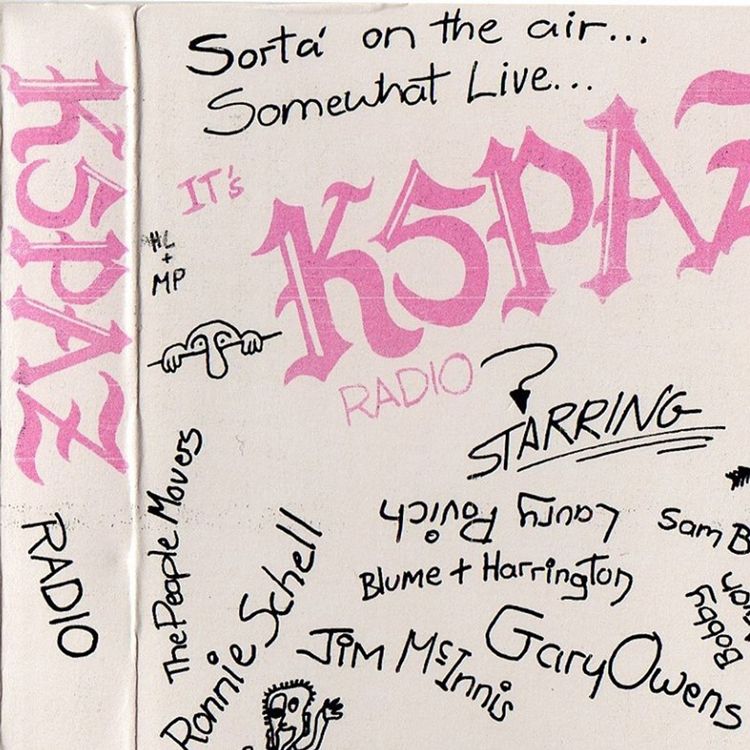 KSPAZ
RADIO
Sorta' on the air...
Somewhat Live...
IT'S
KSPAZ
RADIO
HL
+
MP
STARRING
Larry Rovich
Sam B
Blume + Harrington
Bobby
The People Movers
Ronnie Schell
Jim McInnis
Gary Owens